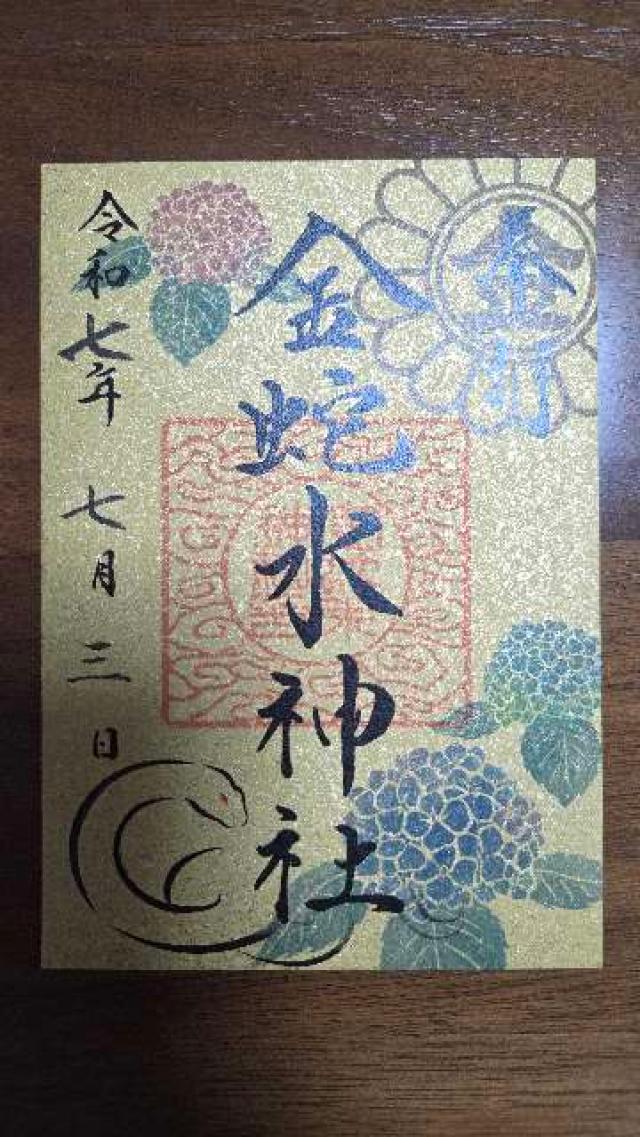 金蛇水神社
令和七年 七月 三日